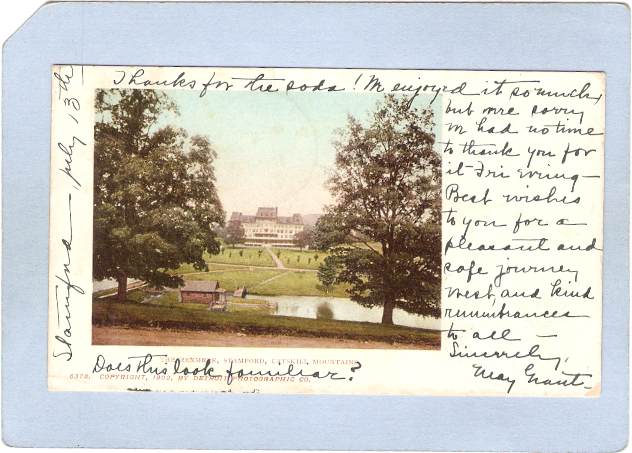 Thanks for the soda! M enjoyed it so much,
but were sorry
M had no time
to thank you for
it Fri Evening —
Best wishes
to you for a
pleasant and
safe journey
West, and kind
rememberances
to all —
Sincerely,
May Grant —
Stamford — July 13th
THE REXMERE, STAMFORD, CATSKILL MOUNTAINS
Does this look familiar?
6378. COPYRIGHT, 1902, BY DETROIT PHOTOGRAPHIC CO.